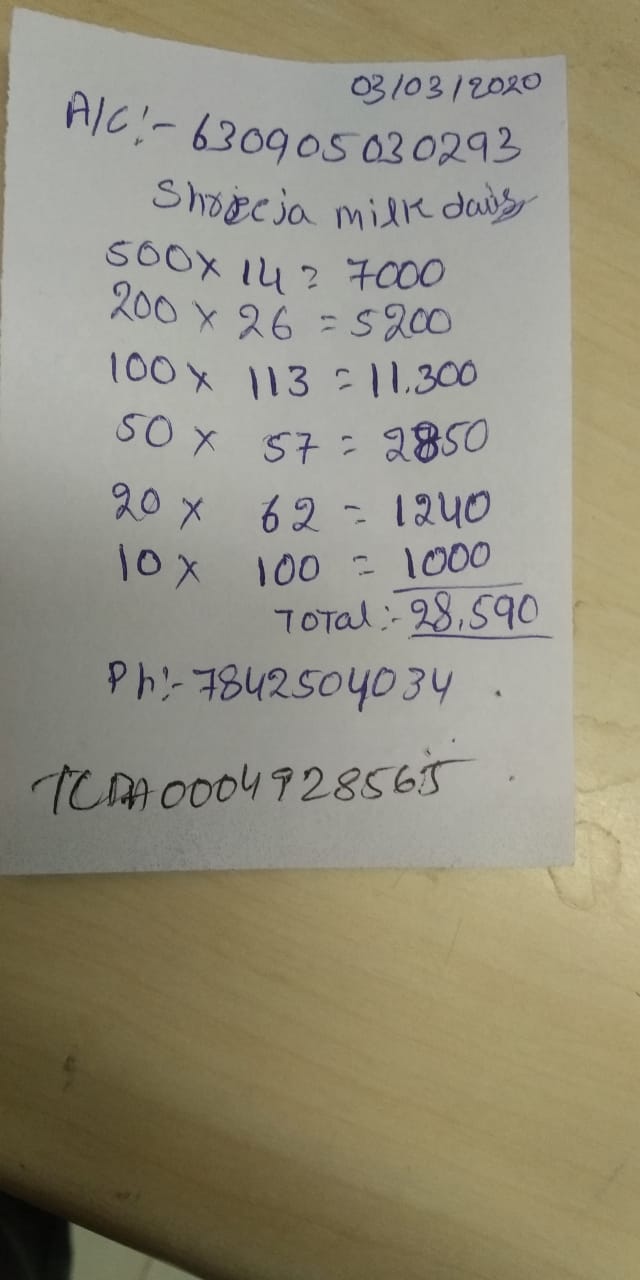 03/03/2020
A/C:- 630905030293
Shreeja milk dairy
500 x 14 = 7000
200 x 26 = 5200
100 x 113 = 11.300
50 x 57 = 2850
20 x 62 = 1240
10 x 100 = 1000
Total:- 28,590
Ph:- 7842504034 .
TCDA0004928565 .